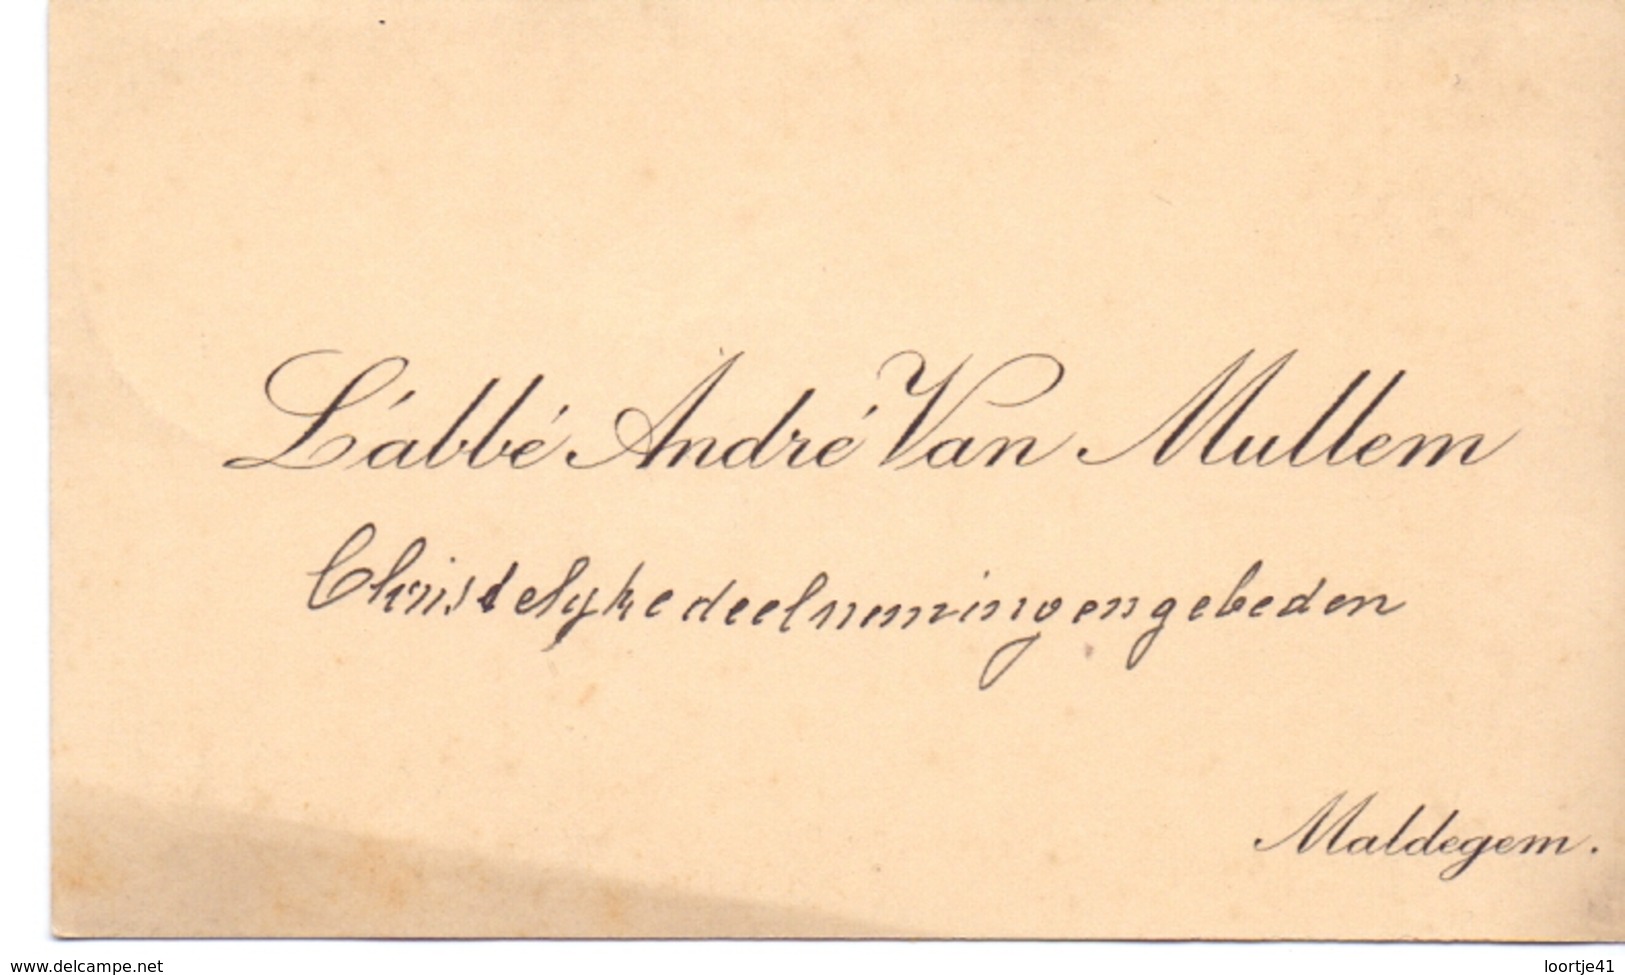 L'abbé André Van Mullem
Christelyke deelneming en gebeden
Maldegem.
www.delcampe.net
loortje41